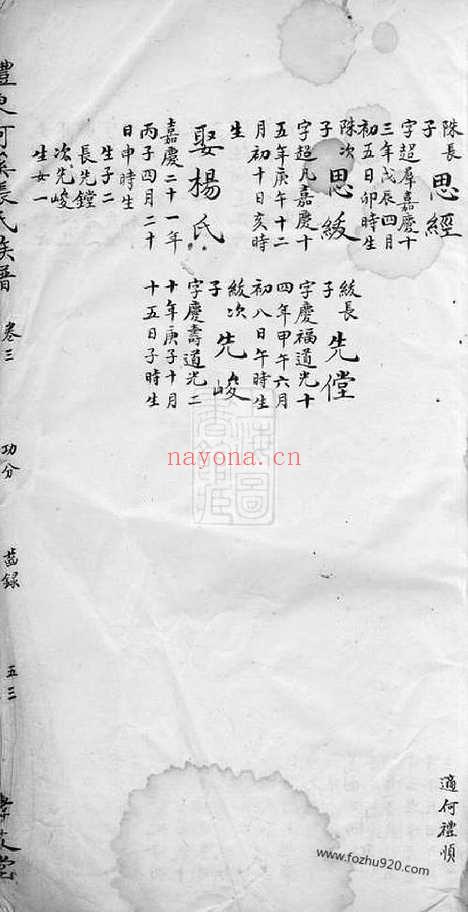 適何禮順
長子
思經
字超羣嘉慶十
三年戊辰四月
初五日卯時生
次子
思紱
字超凡嘉慶十
五年庚午十二
月初十日亥時
生
娶楊氏
嘉慶二十一年
丙子四月二十
日申時生
生子二
長先鏜
次先峻
生女一
紱長子
先鏜
字慶福道光十
四年甲午六月
初八日午時生
紱次子
先峻
字慶壽道光二
十年庚子十月
十五日子時生
卷三
功分
齒錄
五三
nayona.cn
www.fozhu920.com